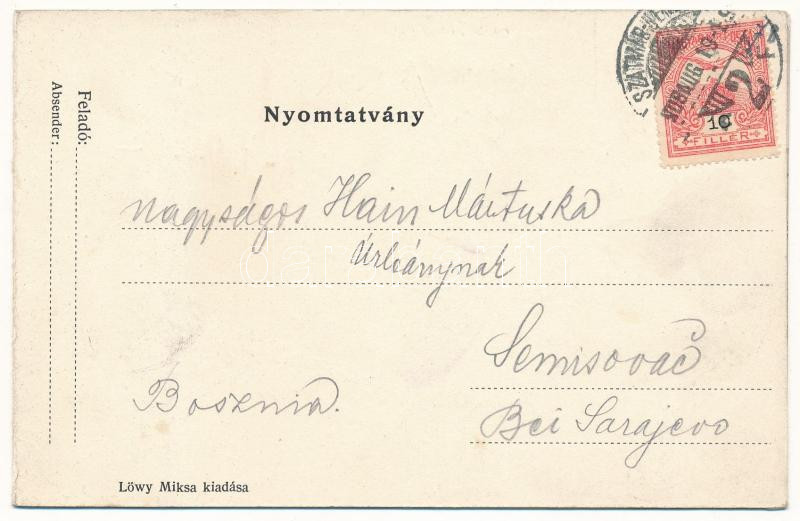 Nyomtatvány
Feladó:
Absender:
SZATMÁR-NÉM
10
FILLÉR
nagyságos Hain Mártuska
Úrleánynak
Semisovać
Bosznia.
Bei Sarajevo
Löwy Miksa kiadása